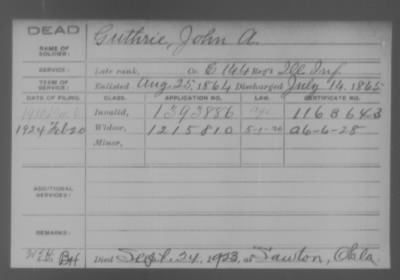 DEAD
NAME OF SOLDIER: Guthrie, John A.
SERVICE: Late rank, Co. E 144 Reg't Ill. Inf.
TERM OF SERVICE: Enlisted Aug. 25, 1864 Discharged July 14, 1865
DATE OF FILING. CLASS. APPLICATION NO. LAW. CERTIFICATE NO.
Invalid, 1393886 Age 1168643
1924 Feb 20 Widow, 1215810 5-1-20 A6-6-28
Minor,
ADDITIONAL SERVICES:
REMARKS:
BH Died Sept. 24, 1923, at Lawton, Okla